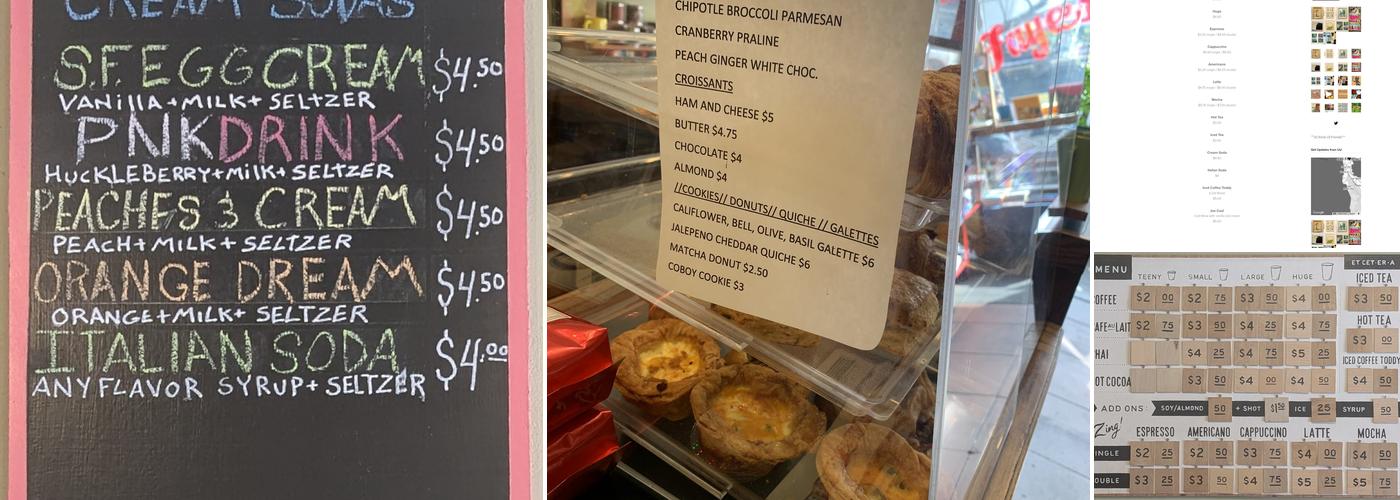 CREAM SODAS
S.F. EGG CREAM $4.50
VANillA+MILK+ SELTZER
PNK DRINK $4.50
HUCKLEBERRY+MILK+ SELTZER
PEACHES & CREAM $4.50
PEACH+MILK+SELTZER
ORANGE DREAM $4.50
ORANGE+MILK+ SELTZER
ITALIAN SODA $4.00
ANY FLAVOR SYRUP+ SELTZER
CHIPOTLE BROCCOLI PARMESAN
CRANBERRY PRALINE
PEACH GINGER WHITE CHOC.
CROISSANTS
HAM AND CHEESE $5
BUTTER $4.75
CHOCOLATE $4
ALMOND $4
//COOKIES// DONUTS// QUICHE // GALETTES
CALIFLOWER, BELL, OLIVE, BASIL GALETTE $6
JALEPENO CHEDDAR QUICHE $6
MATCHA DONUT $2.50
COBOY COOKIE $3
Espresso
Cappuccino
Americano
Latte
Mocha
Hot Tea
Iced Tea
Cream Soda
Italian Soda
Iced Coffee Toddy
MENU TEENY SMALL LARGE HUGE
OFFEE $2 00 $2 75 $3 50 $4 00
AFE AU LAIT $2 75 $3 50 $4 25 $4 75
HAI $4 25 $4 75 $5 25
OT COCOA $3 50 $4 00 $4 50
ET CET·ER·A
ICED TEA
$3 50
HOT TEA
$3 00
ICED COFFEE TODDY
$4 50
ADD ONS: SOY/ALMOND 50 + SHOT $1 50 ICE 25 SYRUP 50
Zing!
ESPRESSO AMERICANO CAPPUCCINO LATTE MOCHA
INGLE $2 25 $2 50 $3 75 $4 00 $4 50
OUBLE $3 25 $3 50 $4 75 $5 25 $5 75